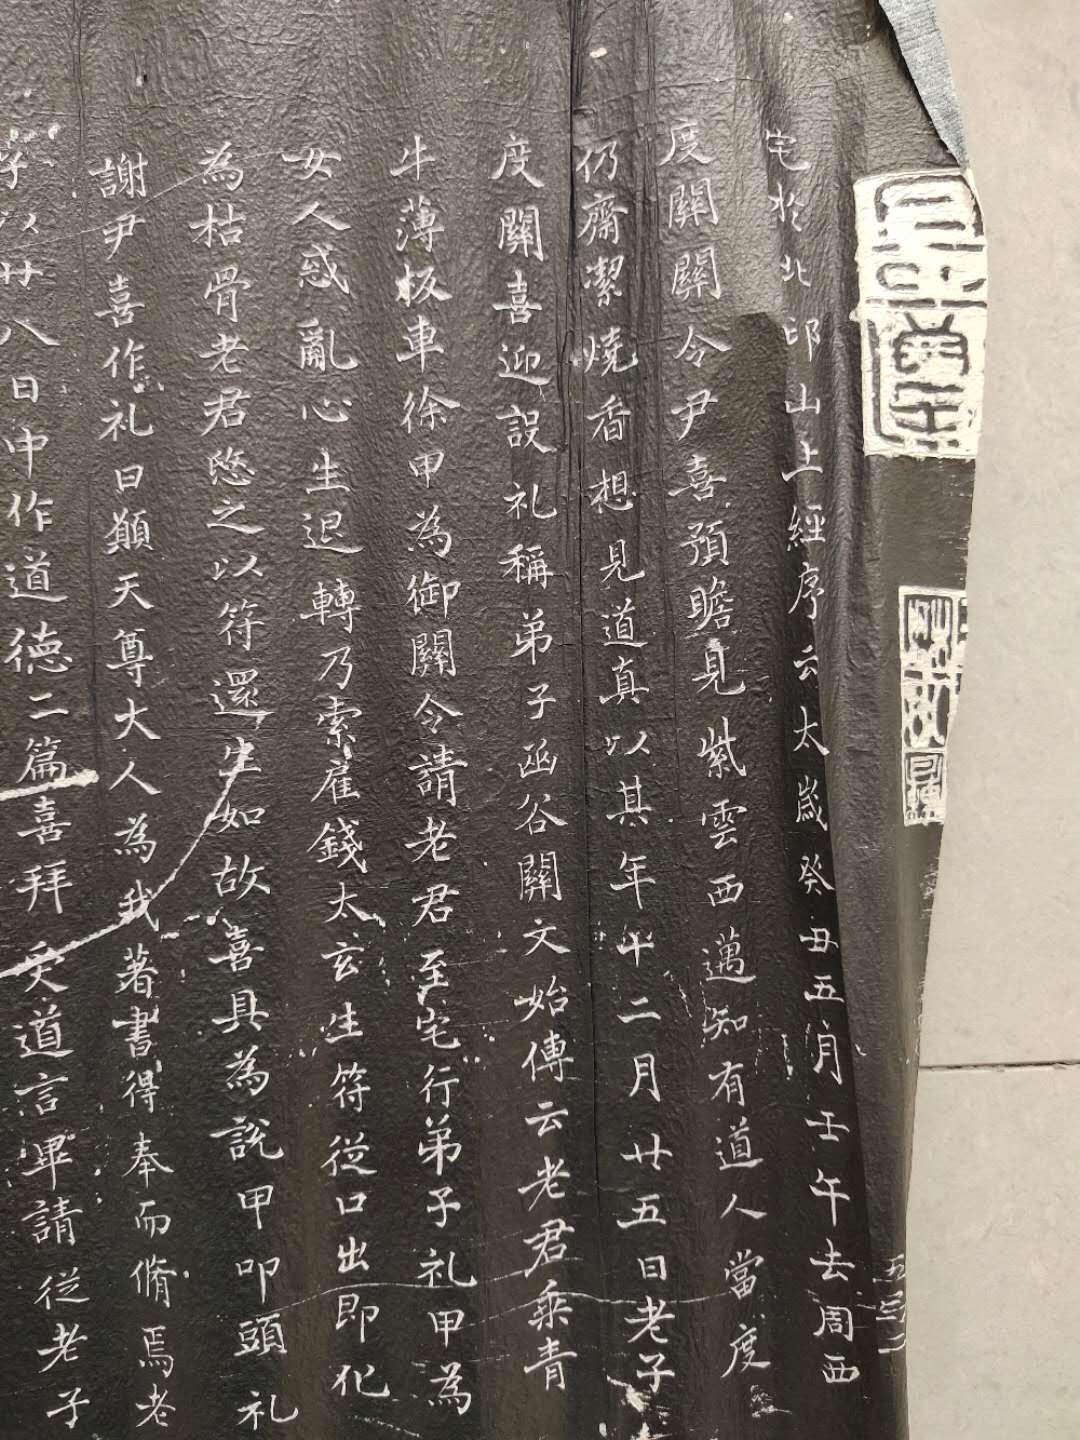 宅於北邙山上經序云太歲癸丑五月壬午去周西
度關關令尹喜預瞻見紫雲西邁知有道人當度
仍齋潔燒香想見道真以其年十二月廿五日老子
度關喜迎設礼稱弟子函谷關文始傳云老君乘青
牛薄板車徐甲為御關令請老君至宅行弟子礼甲為
女人惑亂心生退轉乃索雇錢太玄生符從口出即化
為枯骨老君愍之以符還生如故喜具為說甲叩頭礼
謝尹喜作礼曰願天尊大人為我著書得奉而脩焉老
子以廿八日中作道德二篇喜拜受道言畢請從老子